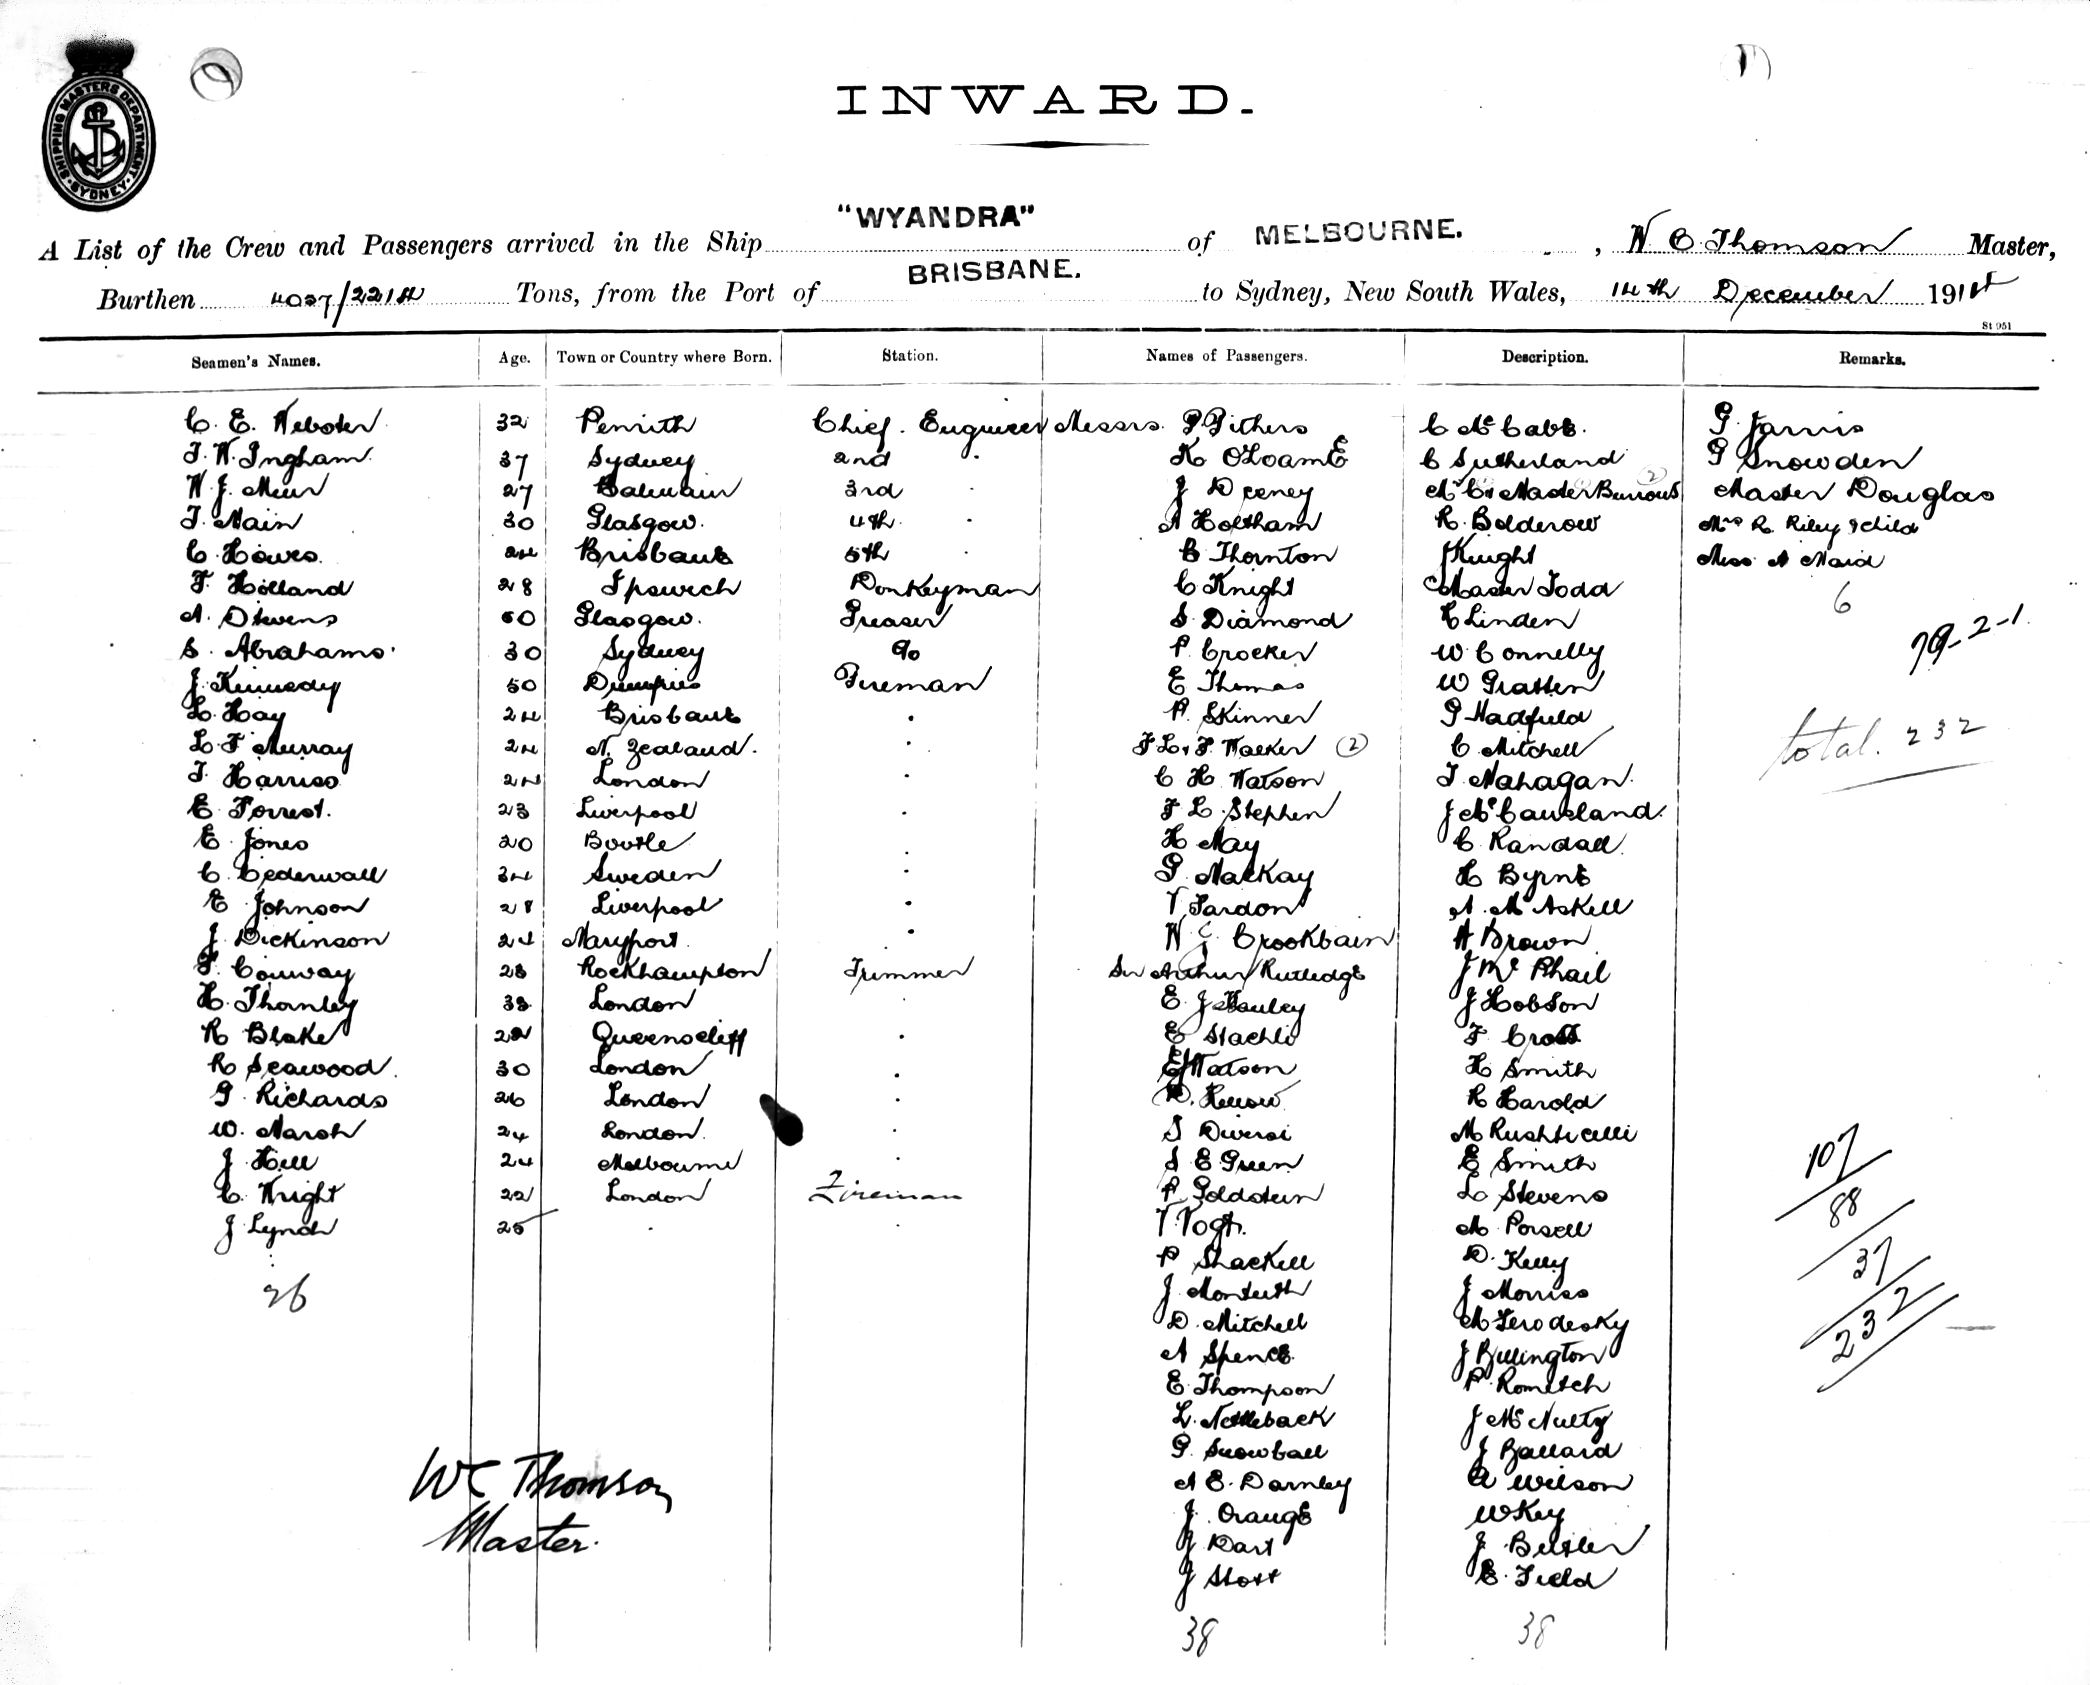 SHIPPING MASTERS DEPARTMENT
SYDNEY
INWARD.
A List of the Crew and Passengers arrived in the Ship "WYANDRA" of MELBOURNE. , W C Thomson Master,
Burthen 4037/2214 Tons, from the Port of BRISBANE. to Sydney, New South Wales, 14th December 191
St 951
Seamen's Names. Age. Town or Country where Born. Station. Names of Passengers. Description. Remarks.
C. E. Webster 32 Penrith Chief Engineer Messrs. P Pithers C McCabe. G Jarvis
T. W. Ingham 37 Sydney 2nd K O'Loame C Sutherland G Snowden
W. J. Muir 27 Balmain 3rd J Deeney Mr C & Master Burrows (2) Master Douglas
T. Main 30 Glasgow. 4th A Holtham R. Bolderow Mrs R Riley & child
C. Howes. 24 Brisbane 5th C Thornton J Knight Miss A Maid
F. Holland 28 Ipswich Donkeyman C Knight Master Todd 6
A. Stevens 50 Glasgow. Greaser S. Diamond C Linden
S. Abrahams 30 Sydney do P. Crocker W Connelly 79-2-1
J. Kennedy 50 Dumfries Fireman E Thomas W Gratten
L. Hay 24 Brisbane P. Skinner G Hadfield
L. F Murray 24 N. Zealand. F L & F. Walker (2) C Mitchell total. 232
T. Harriss 24 London C H Watson T. Mahagan.
E Forrest. 23 Liverpool F L. Stephen J McCausland.
E Jones 20 Bootle H May C. Randall.
C. Cederwall 34 Sweden G. Mackay H Byrne
E Johnson 28 Liverpool V Sardon A. McAskell
J. Dickinson 24 Maryport W. G Crookbain A Brown
F. Conway 23 Rockhampton Trimmer Sir Arthur Rutledge J McPhail
H. Thornley 33 London E J Hanley J Hobson
R Blake 22 Queenscliff E Staehli F Cross
R Seawood. 30 London E J Watson H Smith
G. Richards 26 London R Harold
W. Marsh 24 London. S Diversi M Rushticelli
J Hill 24 Melbourne S E Green E Smith 107
C. Wright 22 London Fireman P Goldstein L Stevens 88
J Lynch 25 V. Vogt. M Porsell
P Shackell D. Kelly 37
26 J. Monteith J Morriss
D. Mitchell M Terodesky 232
A Spence. J Billington
E. Thompson P. Rometsch
L. Nettleback J McNulty
G. Snowball J Ballard
WC Thomson A E. Darnley A Wilson
Master. J. Orange W Key
J Dart J Butler
J Stott E. Field
38 38